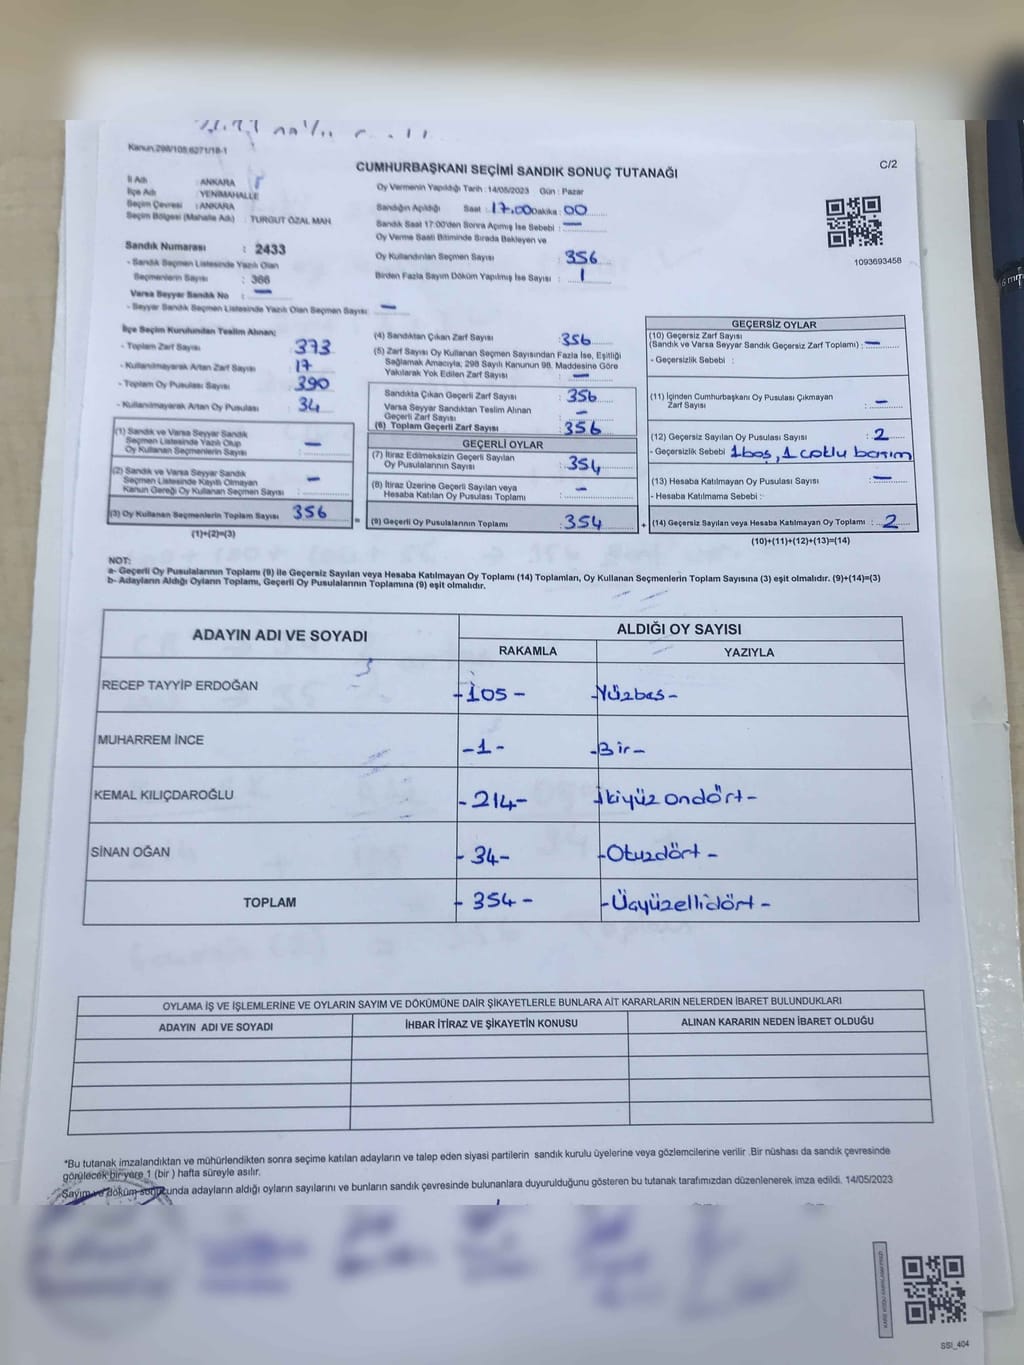 Kanun.298/105;6271/18-1
CUMHURBAŞKANI SEÇİMİ SANDIK SONUÇ TUTANAĞI
C/2
İl Adı : ANKARA
İlçe Adı : YENİMAHALLE
Seçim Çevresi : ANKARA
Seçim Bölgesi (Mahalle Adı) : TURGUT ÖZAL MAH.
Oy Vermenin Yapıldığı Tarih : 14/05/2023 Gün : Pazar
Sandığın Açıldığı Saat : 17.00 Dakika : 00
Sandık Saat 17:00'den Sonra Açılmış İse Sebebi : —
Oy Verme Saati Bitiminde Sırada Bekleyen ve
Oy Kullandırılan Seçmen Sayısı : 356
Birden Fazla Sayım Döküm Yapılmış İse Sayısı : 1
1093693458
Sandık Numarası : 2433
- Sandık Seçmen Listesinde Yazılı Olan
Seçmenlerin Sayısı : 366
Varsa Seyyar Sandık No : —
- Seyyar Sandık Seçmen Listesinde Yazılı Olan Seçmen Sayısı : —
İlçe Seçim Kurulundan Teslim Alınan;
- Toplam Zarf Sayısı : 373
- Kullanılmayarak Artan Zarf Sayısı : 17
- Toplam Oy Pusulası Sayısı : 390
- Kullanılmayarak Artan Oy Pusulası : 34
(1) Sandık ve Varsa Seyyar Sandık
Seçmen Listesinde Yazılı Olup
Oy Kullanan Seçmenlerin Sayısı : —
(2) Sandık ve Varsa Seyyar Sandık
Seçmen Listesinde Kayıtlı Olmayan
Kanun Gereği Oy Kullanan Seçmen Sayısı : —
(3) Oy Kullanan Seçmenlerin Toplam Sayısı : 356
(1)+(2)=(3)
(4) Sandıktan Çıkan Zarf Sayısı : 356
(5) Zarf Sayısı Oy Kullanan Seçmen Sayısından Fazla İse, Eşitliği
Sağlamak Amacıyla, 298 Sayılı Kanunun 98. Maddesine Göre
Yakılarak Yok Edilen Zarf Sayısı : —
Sandıkta Çıkan Geçerli Zarf Sayısı : 356
Varsa Seyyar Sandıktan Teslim Alınan
Geçerli Zarf Sayısı : —
(6) Toplam Geçerli Zarf Sayısı : 356
GEÇERLİ OYLAR
(7) İtiraz Edilmeksizin Geçerli Sayılan
Oy Pusulalarının Sayısı : 354
(8) İtiraz Üzerine Geçerli Sayılan veya
Hesaba Katılan Oy Pusulası Toplamı : —
= (9) Geçerli Oy Pusulalarının Toplamı : 354
GEÇERSİZ OYLAR
(10) Geçersiz Zarf Sayısı
(Sandık ve Varsa Seyyar Sandık Geçersiz Zarf Toplamı) : —
- Geçersizlik Sebebi :
(11) İçinden Cumhurbaşkanı Oy Pusulası Çıkmayan
Zarf Sayısı : —
(12) Geçersiz Sayılan Oy Pusulası Sayısı : 2
- Geçersizlik Sebebi : 1 boş, 1 çoklu basım
(13) Hesaba Katılmayan Oy Pusulası Sayısı : —
- Hesaba Katılmama Sebebi :
+ (14) Geçersiz Sayılan veya Hesaba Katılmayan Oy Toplamı : 2
(10)+(11)+(12)+(13)=(14)
NOT:
a- Geçerli Oy Pusulalarının Toplamı (9) ile Geçersiz Sayılan veya Hesaba Katılmayan Oy Toplamı (14) Toplamları, Oy Kullanan Seçmenlerin Toplam Sayısına (3) eşit olmalıdır. (9)+(14)=(3)
b- Adayların Aldığı Oyların Toplamı, Geçerli Oy Pusulalarının Toplamına (9) eşit olmalıdır.
ADAYIN ADI VE SOYADI
ALDIĞI OY SAYISI
RAKAMLA YAZIYLA
RECEP TAYYİP ERDOĞAN -105- -Yüzbeş-
MUHARREM İNCE -1- -Bir-
KEMAL KILIÇDAROĞLU -214- -İkiyüz ondört-
SİNAN OĞAN -34- -Otuzdört-
TOPLAM -354- -Üçyüzellidört-
OYLAMA İŞ VE İŞLEMLERİNE VE OYLARIN SAYIM VE DÖKÜMÜNE DAİR ŞİKAYETLERLE BUNLARA AİT KARARLARIN NELERDEN İBARET BULUNDUKLARI
ADAYIN ADI VE SOYADI İHBAR İTİRAZ VE ŞİKAYETİN KONUSU ALINAN KARARIN NEDEN İBARET OLDUĞU
*Bu tutanak imzalandıktan ve mühürlendikten sonra seçime katılan adayların ve talep eden siyasi partilerin sandık kurulu üyelerine veya gözlemcilerine verilir .Bir nüshası da sandık çevresinde
görülecek bir yere 1 (bir ) hafta süreyle asılır.
Sayım ve döküm sonucunda adayların aldığı oyların sayılarını ve bunların sandık çevresinde bulunanlara duyurulduğunu gösteren bu tutanak tarafımızdan düzenlenerek imza edildi. 14/05/2023
SSI_404